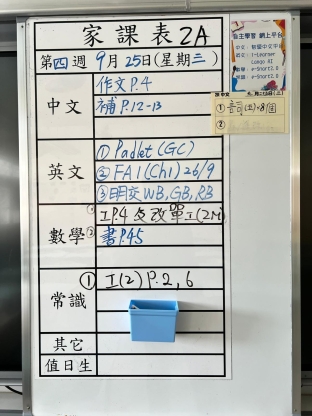 家課表2A
第四週 9月25日(星期三)
中文
作文P.4
補P.12-13
英文
① Padlet (GC)
② FA1 (Ch1) 26/9
③ 明交 WB, GB, RB
數學
① IP.4 及改單I(2M)
② 書P.45
常識
① I(2) P.2, 6
其它
值日生
自主學習 網上平台
中文:
英文: i-Learner
數學: e-Smart2.0
常識: e-Smart2.0
①
②